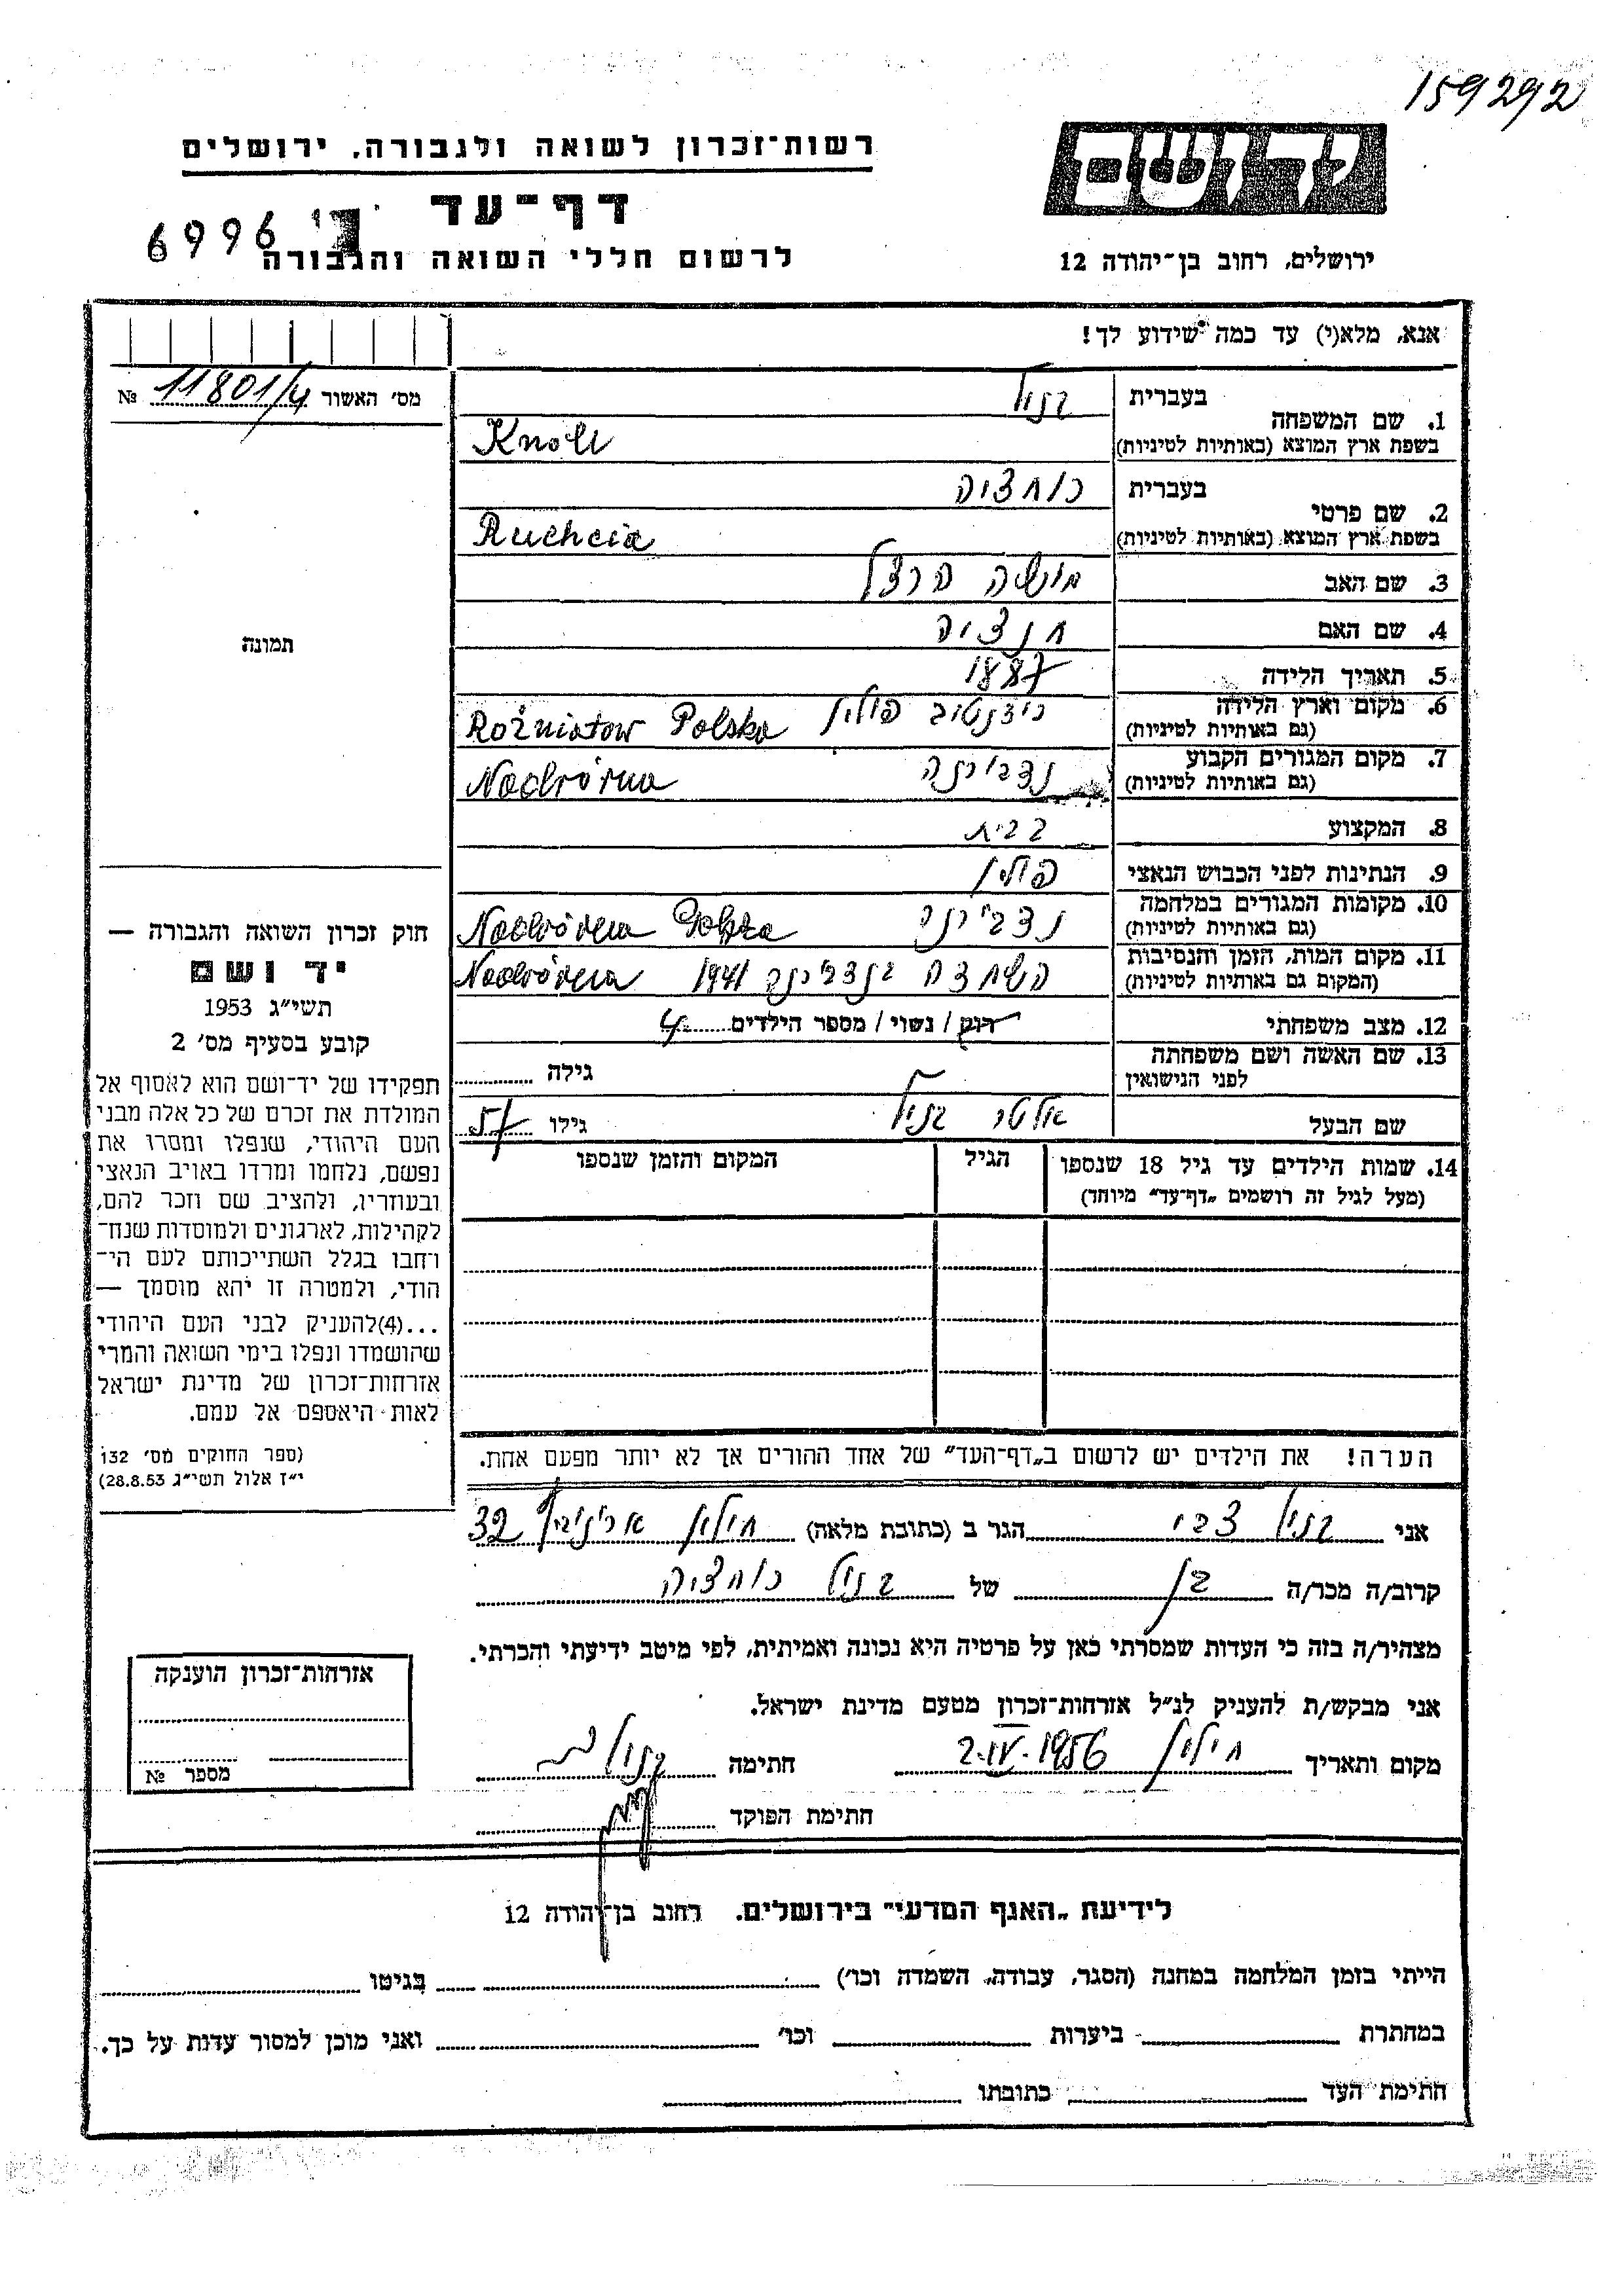 159292
ידושם
רשות־זכרון לשואה ולגבורה, ירושלים
דף־עד
6996
לרשום חללי השואה והגבורה
ירושלים, רחוב בן־יהודה 12
אנא, מלא(י) עד כמה שידוע לך!
מס׳ האשור 11801/4 №
תמונה
1. שם המשפחה
בעברית קנול
בשפת ארץ המוצא (באותיות לטיניות) Knoll
2. שם פרטי
בעברית רוחציה
בשפת ארץ המוצא (באותיות לטיניות) Ruchcia
3. שם האב משה הרצל
4. שם האם חנציה
5. תאריך הלידה 1887
6. מקום וארץ הלידה
(גם באותיות לטיניות) רוז'נטוב פולין Rożniatow Polska
7. מקום המגורים הקבוע
(גם באותיות לטיניות) נדבורנה Nadvórna
8. המקצוע ב בית
9. הנתינות לפני הכבוש הנאצי פולין
10. מקומות המגורים במלחמה
(גם באותיות לטיניות) נדבורנה Nadvórna Polska
11. מקום המות, הזמן והנסיבות
(המקום גם באותיות לטיניות) הושמדה בנדבורנה 1941 Nadvórna
12. מצב משפחתי רוק / נשוי / מספר הילדים 4
13. שם האשה ושם משפחתה
לפני הנישואין גילה
שם הבעל אלטר קנול גילו 57
14. שמות הילדים עד גיל 18 שנספו הגיל המקום והזמן שנספו
(מעל לגיל זה רושמים „דף־עד״ מיוחד)
הערה! את הילדים יש לרשום ב„דף־העד״ של אחד ההורים אך לא יותר מפעם אחת.
אני קנול צבי הגר ב (כתובת מלאה) חולון 32
קרוב/ה מכר/ה בן של קנול רוחציה
מצהיר/ה בזה כי העדות שמסרתי כאן על פרטיה היא נכונה ואמיתית, לפי מיטב ידיעתי והכרתי.
אני מבקש/ת להעניק לנ״ל אזרחות־זכרון מטעם מדינת ישראל.
מקום ותאריך חולון 2.IV.1956 חתימה קנול
חתימת הפוקד
חוק זכרון השואה והגבורה —
יד ושם
תשי״ג 1953
קובע בסעיף מס׳ 2
תפקידו של יד־ושם הוא לאסוף אל
המולדת את זכרם של כל אלה מבני
העם היהודי, שנפלו ומסרו את
נפשם, נלחמו ומרדו באויב הנאצי
ובעוזריו, ולהציב שם וזכר להם,
לקהילות, לארגונים ולמוסדות שנח־
רחבו בגלל השתייכותם לעם הי־
הודי, ולמטרה זו יהא מוסמך —
...(4)להעניק לבני העם היהודי
שהושמדו ונפלו בימי השואה והמרי
אזרחות־זכרון של מדינת ישראל
לאות היאספם אל עמם.
(ספר החוקים מס׳ 132
י״ז אלול תשי״ג 28.8.53)
אזרחות־זכרון הוענקה
מספר №
לידיעת „האגף המדעי״ בירושלים, רחוב בן־יהודה 12
הייתי בזמן המלחמה במחנה (הסגר, עבודה, השמדה וכו׳) בגיטו
במחתרת ביערות וכו׳ ואני מוכן למסור עדות על כך.
חתימת העד כתובתו